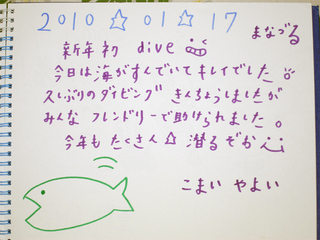 2010☆01☆17
まなづる
新年初 dive
今日は海がすんでいてキレイでした
久しぶりのダイビング きんちょうしましたが
みんな フレンドリーで助けられました。
今年も たくさん☆ 潜るぞぉ
こまい やよい